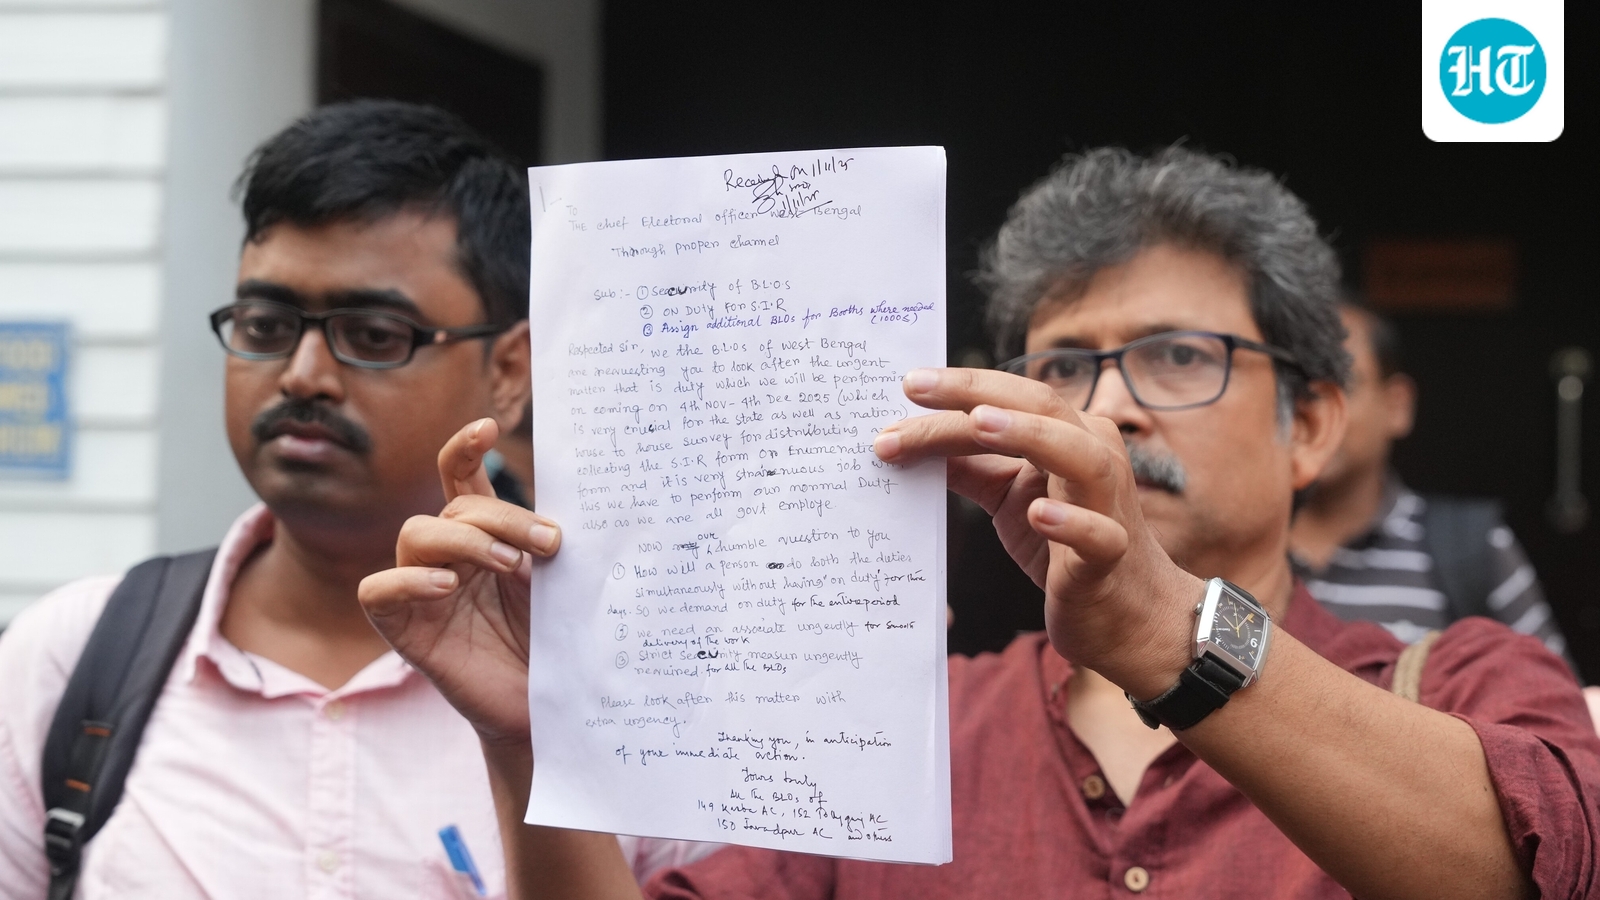 HT
Received on 1/11/25
1/11/25
To
THE chief Electoral officer West Bengal
Through proper channel
Sub:- ① Security of B.L.O.s
② ON DUTY FOR S.I.R
③ Assign additional BLOs for Booths where needed
(1000≤)
Respected Sir, we the B.L.Os of West Bengal
are requesting you to look after the urgent
matter that is duty which we will be performin
on coming on 4th NOV - 4th Dec 2025 (which
is very crucial for the state as well as nation)
house to house survey for distributing a
collecting the S.I.R form or Enumeratio
form and it is very strainenuous job w
this we have to perform our normal Duty
also as we are all govt employe
NOW our humble question to you
① How will a person do both the duties
simultaneously without having 'on duty' for this
days. So we demand on duty for the entire period
② we need an associate urgently for smooth
delivery of the work
③ Strict security measure urgently
required for all the BLOs
Please look after this matter with
extra urgency.
Thanking you, in anticipation
of your immediate action.
Yours truly
All the BLOs of
149 Kasba AC, 152 Tollygunj AC
150 Jadavpur AC and others
6